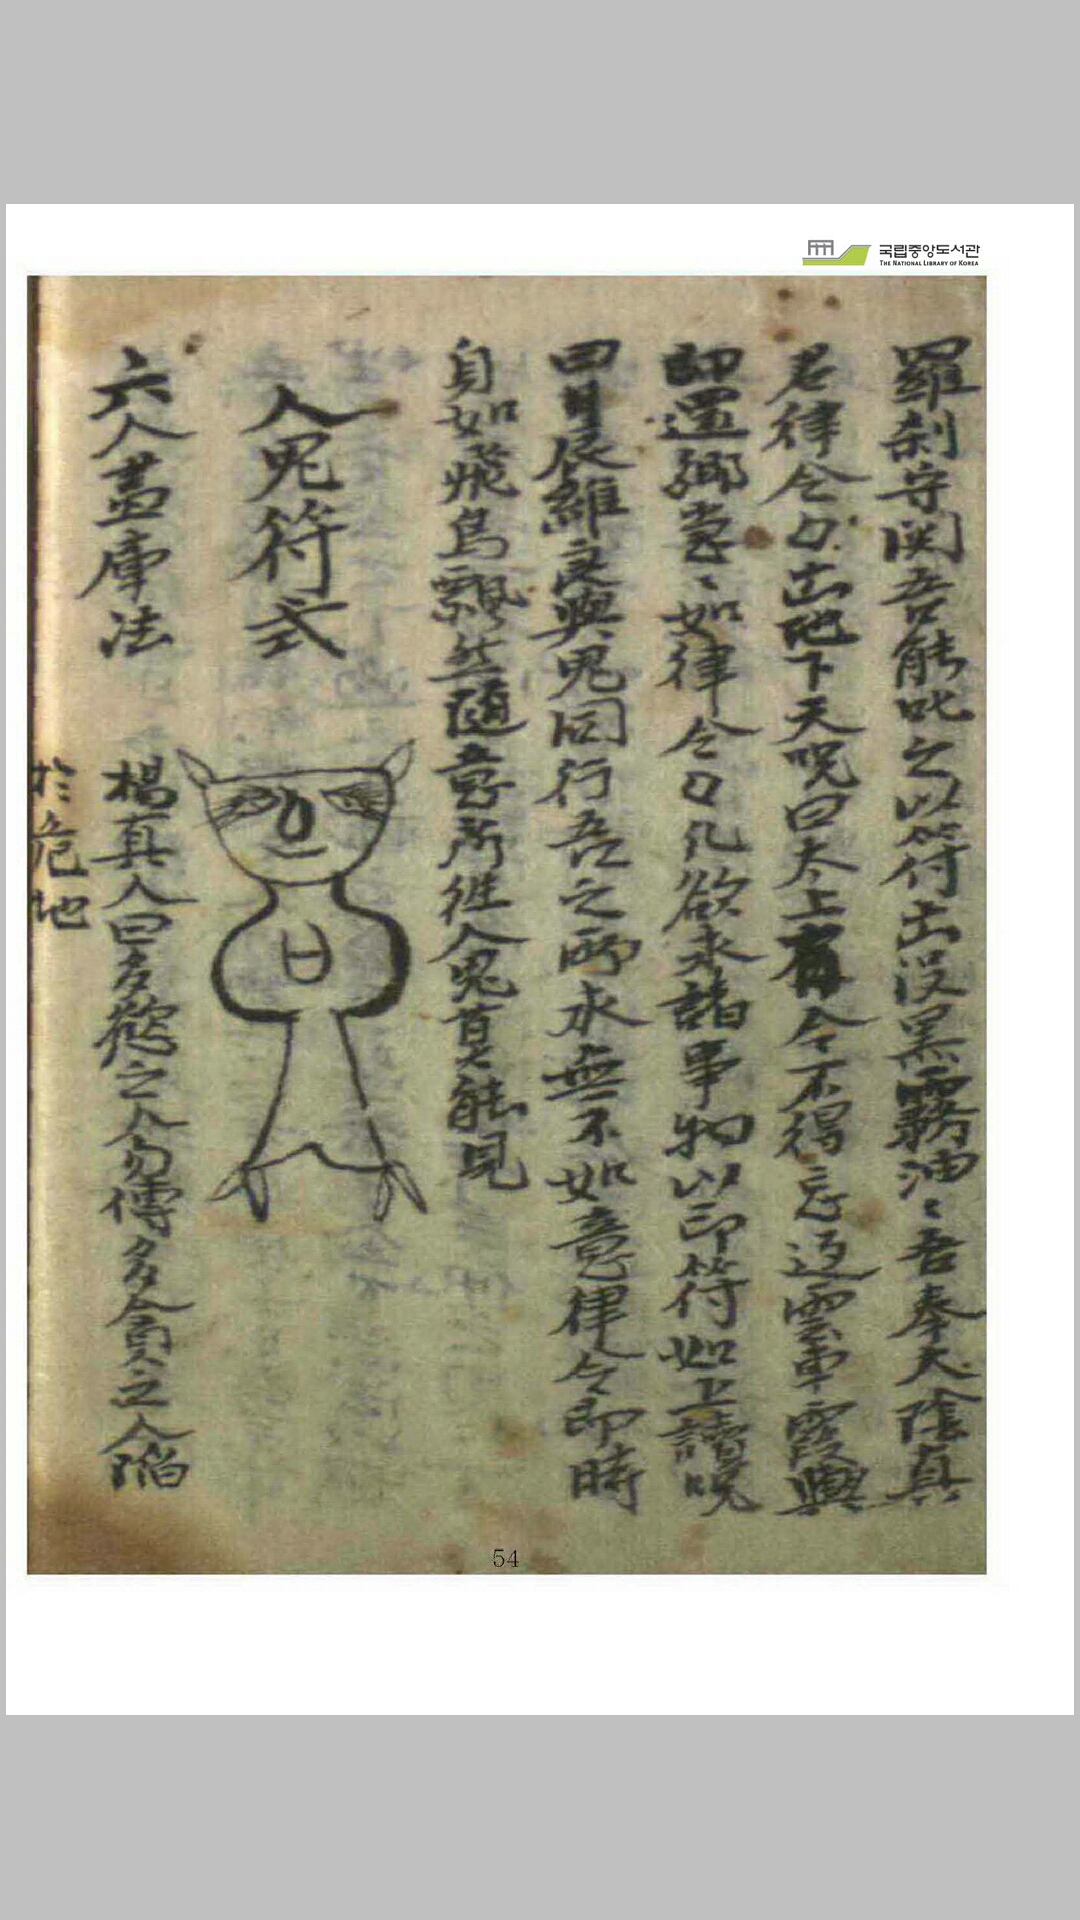 국립중앙도서관
THE NATIONAL LIBRARY OF KOREA
羅刹守関吾能叱之以符出没黑霧油〻吾奉太陰真
君律令刀出地下天呪曰太上有令不得忘返雲車霞輿
即還鄉急〻如律令刀凡欲求諸事物以印符如上讀呪
曰月辰維良與鬼同行吾之所求無不如意律令即時
身如飛鳥飄然隨意所徃人鬼莫能見
人鬼符式
六人盡庫法
楊真人曰多慾之人勿傳多貪之人陷
於危地
54